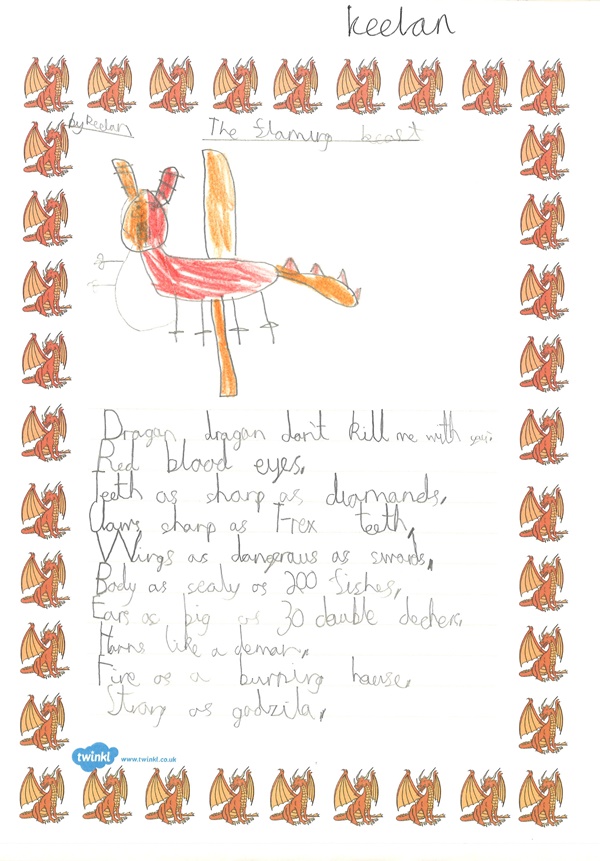 keelan
by Keelan
The flaming beast
Dragon dragon don't kill me with your
Red blood eyes,
Teeth as sharp as diamands,
Claws sharp as T-rex teeth,
Wings as dangeraus as swords,
Body as scaly as 200 fishes,
Ears as big as 30 double decker,
Horns like a deman,
Fire as a burning hause,
Strong as godzila,
twinkl www.twinkl.co.uk